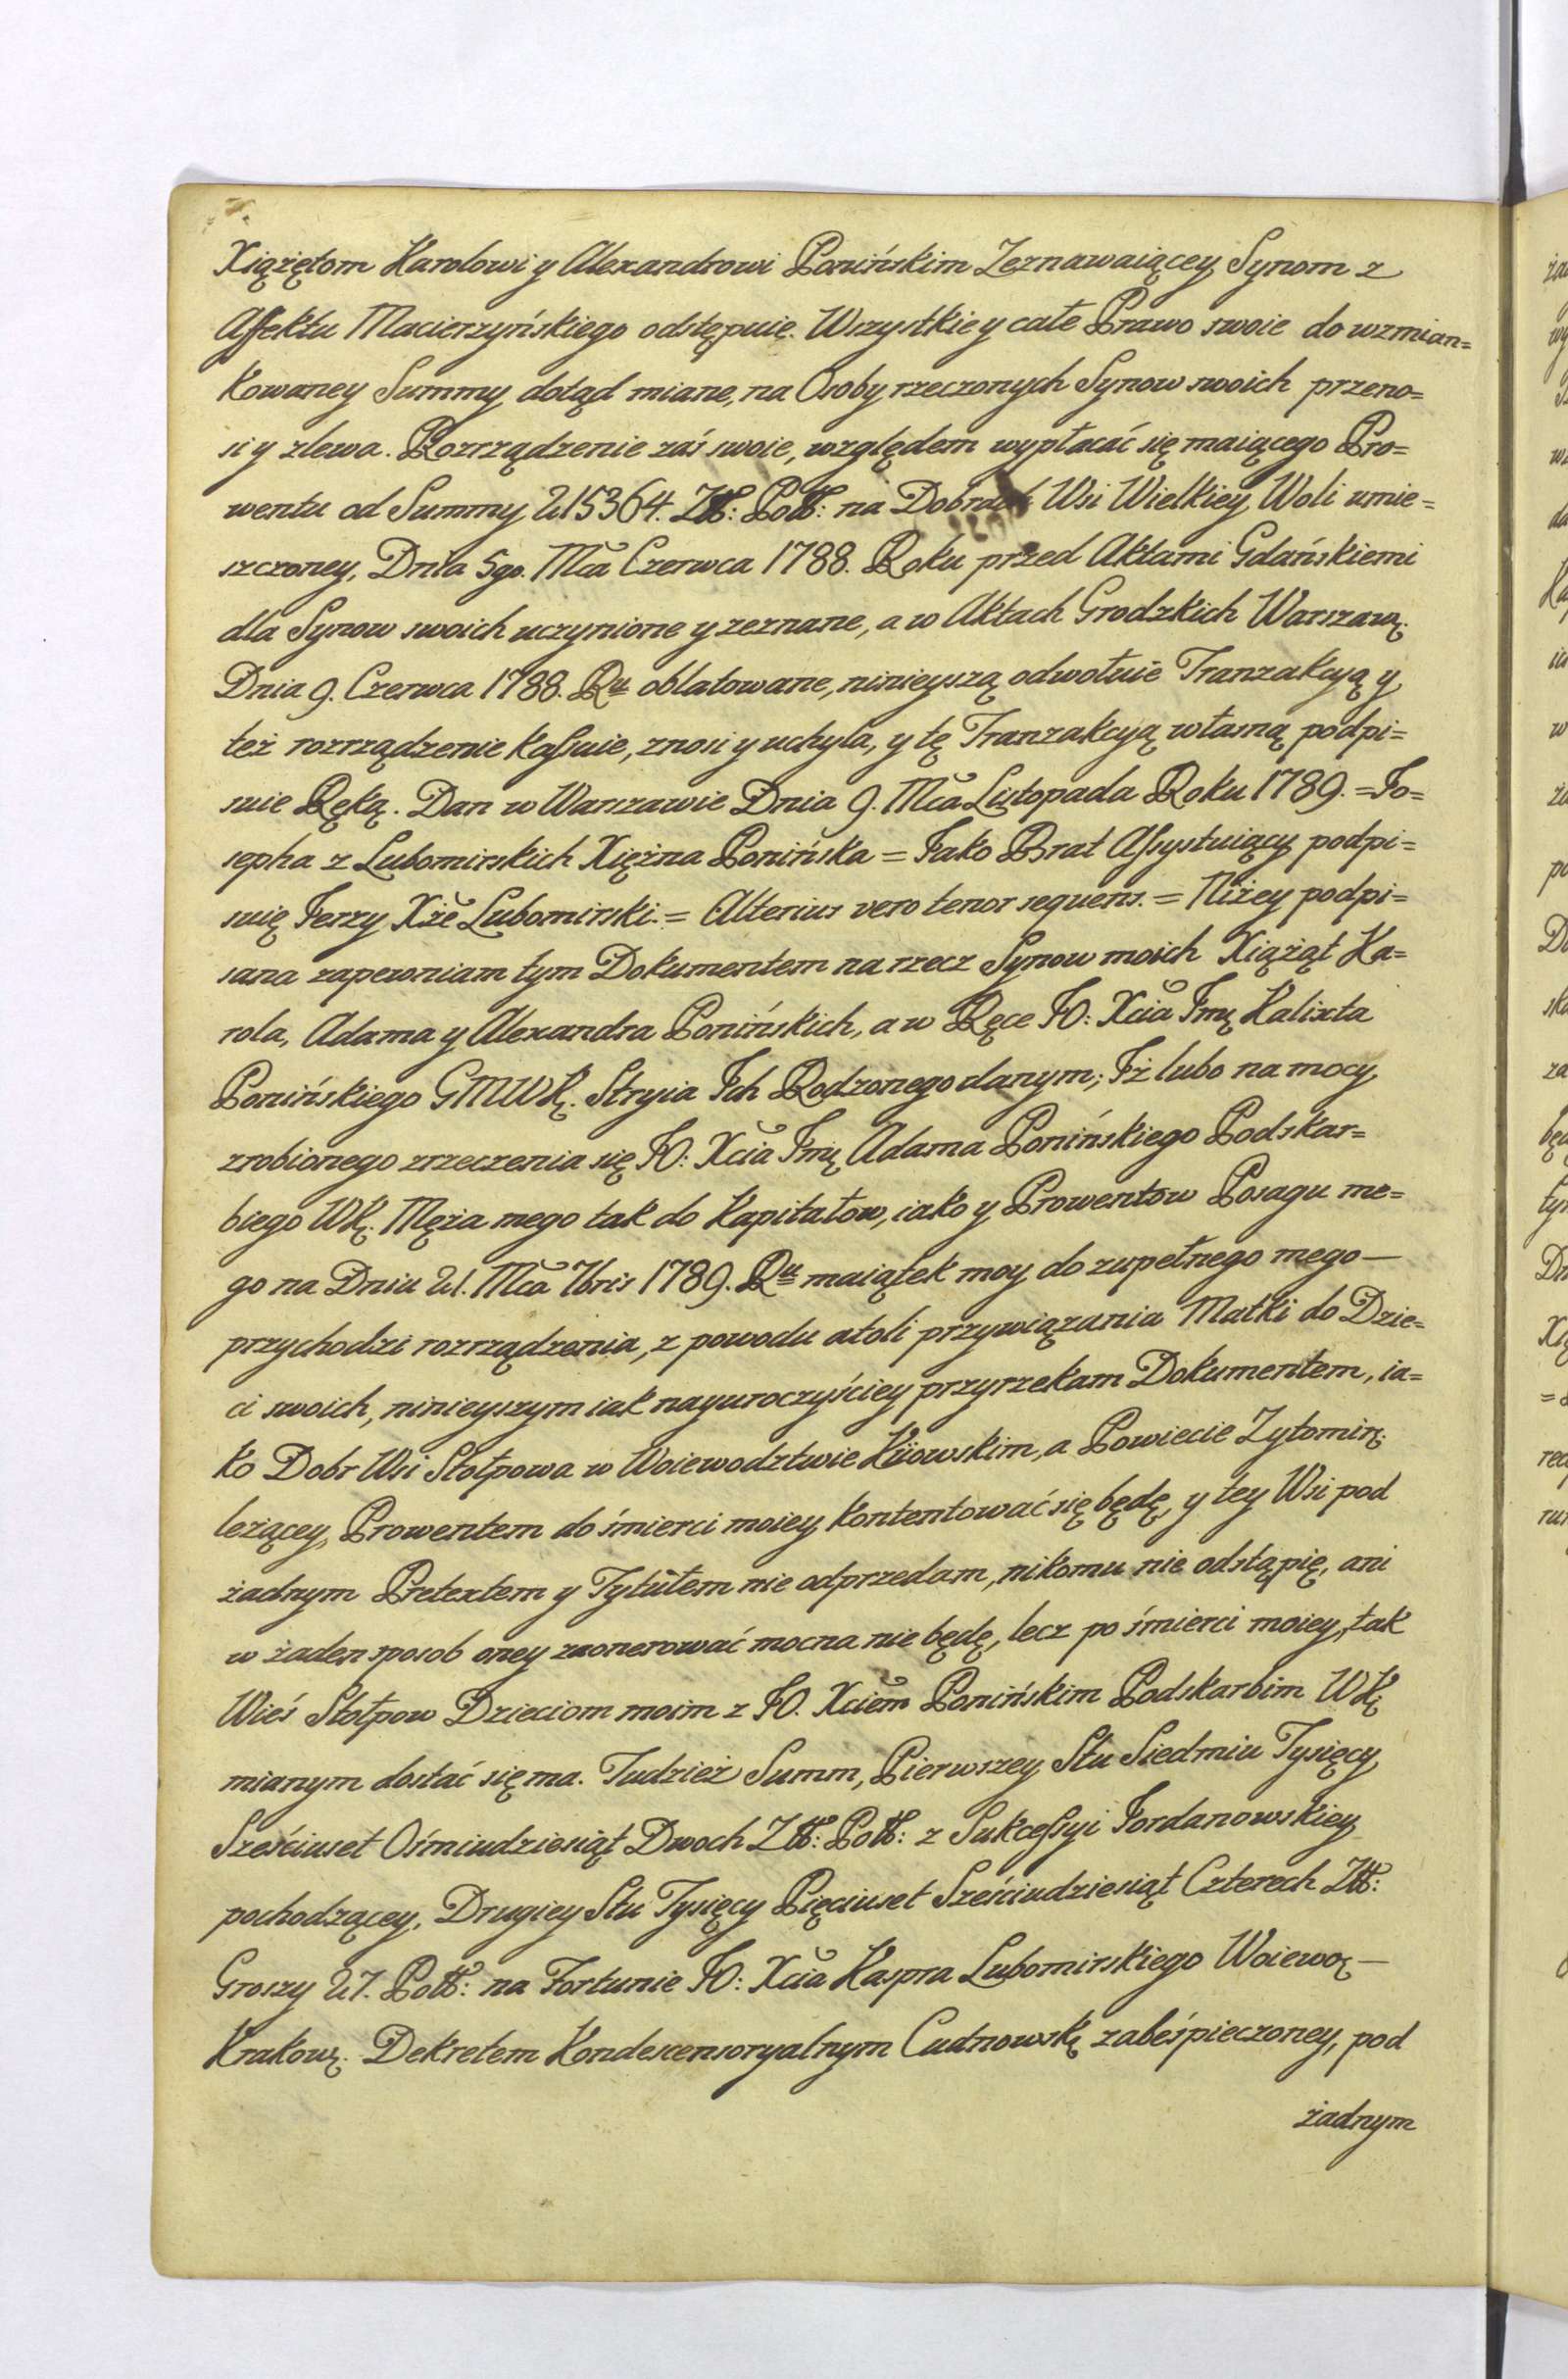 Xiążętom Karolowi y Alexandrowi Ponińskim Zeznawaiącey Synom z
Affektu Macierzyńskiego odstępuie. Wszystkie y całe Prawo swoie do wzmian=
kowaney Summy dotąd miane, na Osoby rzeczonych Synow swoich przeno=
si y zlewa. Rozrządzenie zaś swoie, względem wypłacać się maiącego Pro=
wentu od Summy 215364. Złł: Poll: na Dobrach Wsi Wielkiey Woli umie=
szczoney, Dnia 5go. Mca Czerwca 1788. Roku przed Aktami Gdańskiemi
dla Synow swoich uczynione y zeznane, a w Aktach Grodzkich Warszawą.
Dnia 9. Czerwca 1788. Ru oblatowane, ninieyszą odwołuie Tranzakcyą y
też rozrządzenie kassuie, znosi y uchyla, y tę Tranzakcyą własną podpi=
suie Ręką. Dan w Warszawie Dnia 9. Mca Listopada Roku 1789. = Jo=
sepha z Lubomirskich Xiężna Ponińska = Jako Brat Assystuiący podpi=
suię Jerzy Xże Lubomirski. = Alterius vero tenor sequens. = Niżey podpi=
sana zapewniam tym Dokumentem na rzecz Synow moich Xiążąt Ka=
rola, Adama y Alexandra Ponińskich, a w Ręce JO: Xcia Jmę Kalixta
Ponińskiego GMWKę. Stryia Ich Rodzonego danym; Iż lubo na mocy
zrobionego zrzeczenia się JO: Xcia Jmę Adama Ponińskiego Podskar=
biego WKę. Męża mego tak do Kapitałow, iako y Prowentow Posagu me=
go na Dniu 21. Mca 7bris 1789. Ru maiątek moy do zupełnego mego —
przychodzi rozrządzenia, z powodu atoli przywiązania Matki do Dzie=
ci swoich, ninieyszym iak nayuroczyściey przyrzekam Dokumentem, ia=
ko Dobr Wsi Stołpowa w Woiewodztwie Kiiowskim, a Powiecie Zytomirę.
leżącey, Prowentem do śmierci moiey kontentować się będę, y tey Wsi pod
żadnym Pretextem y Tytułem nie odprzedam, nikomu nie odstąpię, ani
w żaden sposob oney zaonerować mocna nie będę, lecz po śmierci moiey, tak
Wieś Stołpow Dzieciom moim z JO. Xciem Ponińskim Podskarbim WKę
mianym dostać się ma. Tudzież Summ, Pierwszey Stu Siedmiu Tysięcy
Sześciuset Ośmiudziesiąt Dwoch Złł: Poll: z Sukcessyi Jordanowskiey
pochodzącey, Drugiey Stu Tysięcy Pięciuset Sześciudziesiąt Czterech Złł:
Groszy 27. Poll: na Fortunie JO: Xcia Kaspra Lubomirskiego Woiewoę —
Krakowę. Dekretem Kondescensoryalnym Cudnowskę zabeśpieczoney, pod
żadnym